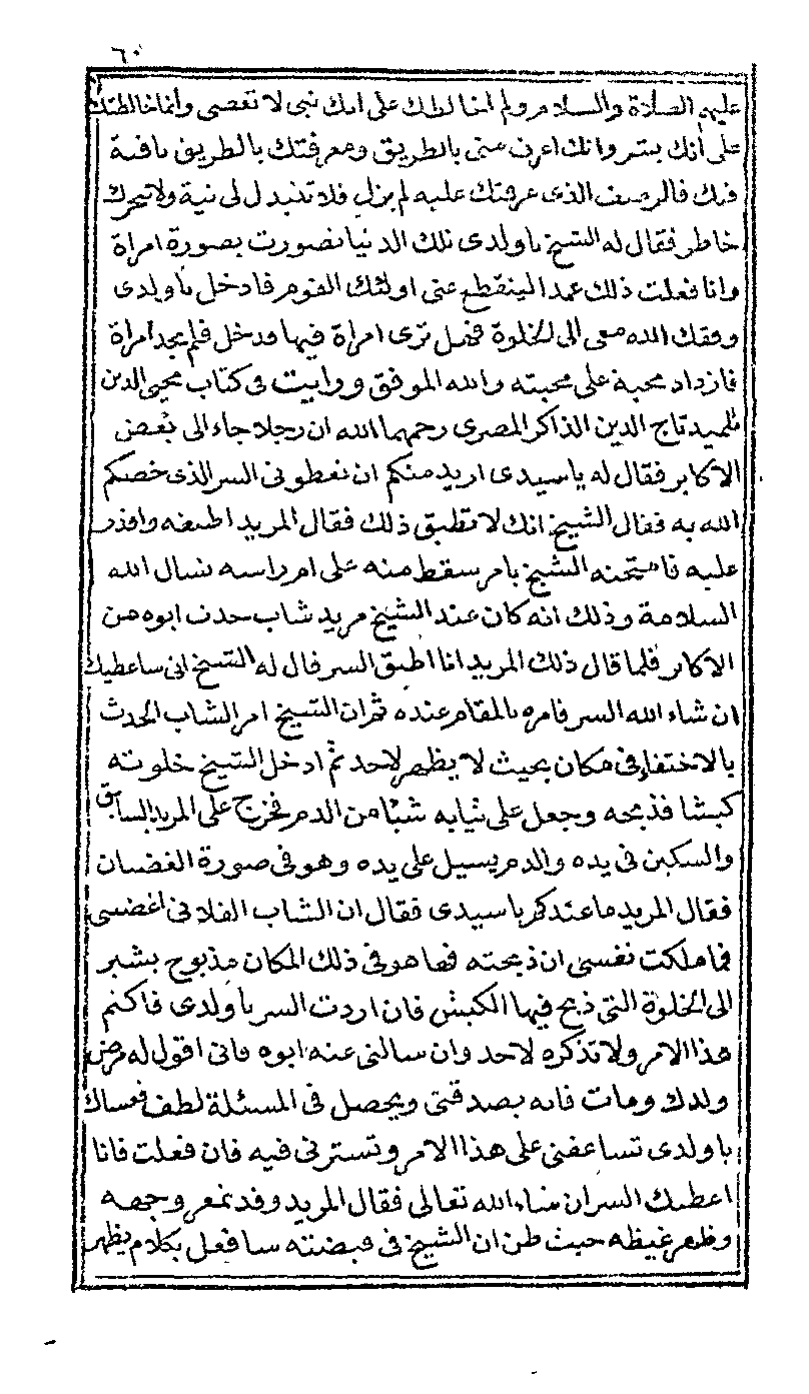 ٦٠
عليهم الصلاة والسلام ولم اخالطك على انك نبى لا تعصى وانما خالطتك
على أنك بشر وانك اعرف منى بالطريق ومعرفتك بالطريق باقية
فيك فالوصف الذى عرفتك عليه لم يزل فلا تتبدل لى نية ولا يتحرك
خاطر فقال له الشيخ ياولدى تلك الدنيا تصورت بصورة امراة
وانا فعلت ذلك عمدا لينقطع عنى اولئك القوم فادخل ياولدى
وفقك الله معى الى الخلوة فهل ترى امراة فيها فدخل فلم يجد امراة
فازداد محبة على محبته والله الموفق ورايت فى كتاب محيى الدين
تلميذ تاج الدين الذاكر المصرى رحمهما الله ان رجلا جاء الى بعض
الاكابر فقال له ياسيدى اريد منكم ان تعطونى السر الذى خصكم
الله به فقال الشيخ انك لا تطيق ذلك فقال المريد اطيقه واقدر
عليه فامتحنه الشيخ بامر سقط منه على ام راسه نسال الله
السلامة وذلك انه كان عند الشيخ مريد شاب حدث ابوه من
الاكابر فلما قال ذلك المريد انا اطيق السر قال له الشيخ انى ساعطيك
ان شاء الله السر فامره بالمقام عنده ثم ان الشيخ امر الشاب الحدث
بالاختفاء فى مكان بحيث لا يظهر لاحد ثم ادخل الشيخ خلوته
كبشا فذبحه وجعل على ثيابه شيئا من الدم فخرج على المريد السابق
والسكين فى يده والدم يسيل على يده وهو فى صورة الغضبان
فقال المريد ما عندكم ياسيدى فقال ان الشاب الفلانى اغضبنى
فما ملكت نفسى ان ذبحته فها هو فى ذلك المكان مذبوح يشير
الى الخلوة التى ذبح فيها الكبش فان اردت السر ياولدى فاكتم
هذا الامر ولا تذكره لاحد وان سالنى عنه ابوه فانى اقول له مرض
ولدك ومات فانه يصدقنى ويحصل فى المسئلة لطف فعساك
ياولدى تساعفنى على هذا الامر وتسترنى فيه فان فعلت فانا
اعطيك السر ان شاء الله تعالى فقال المريد وقد تمعر وجهه
وظهر غيظه حيث ظن ان الشيخ فى قبضته سافعل بكلام يظهر